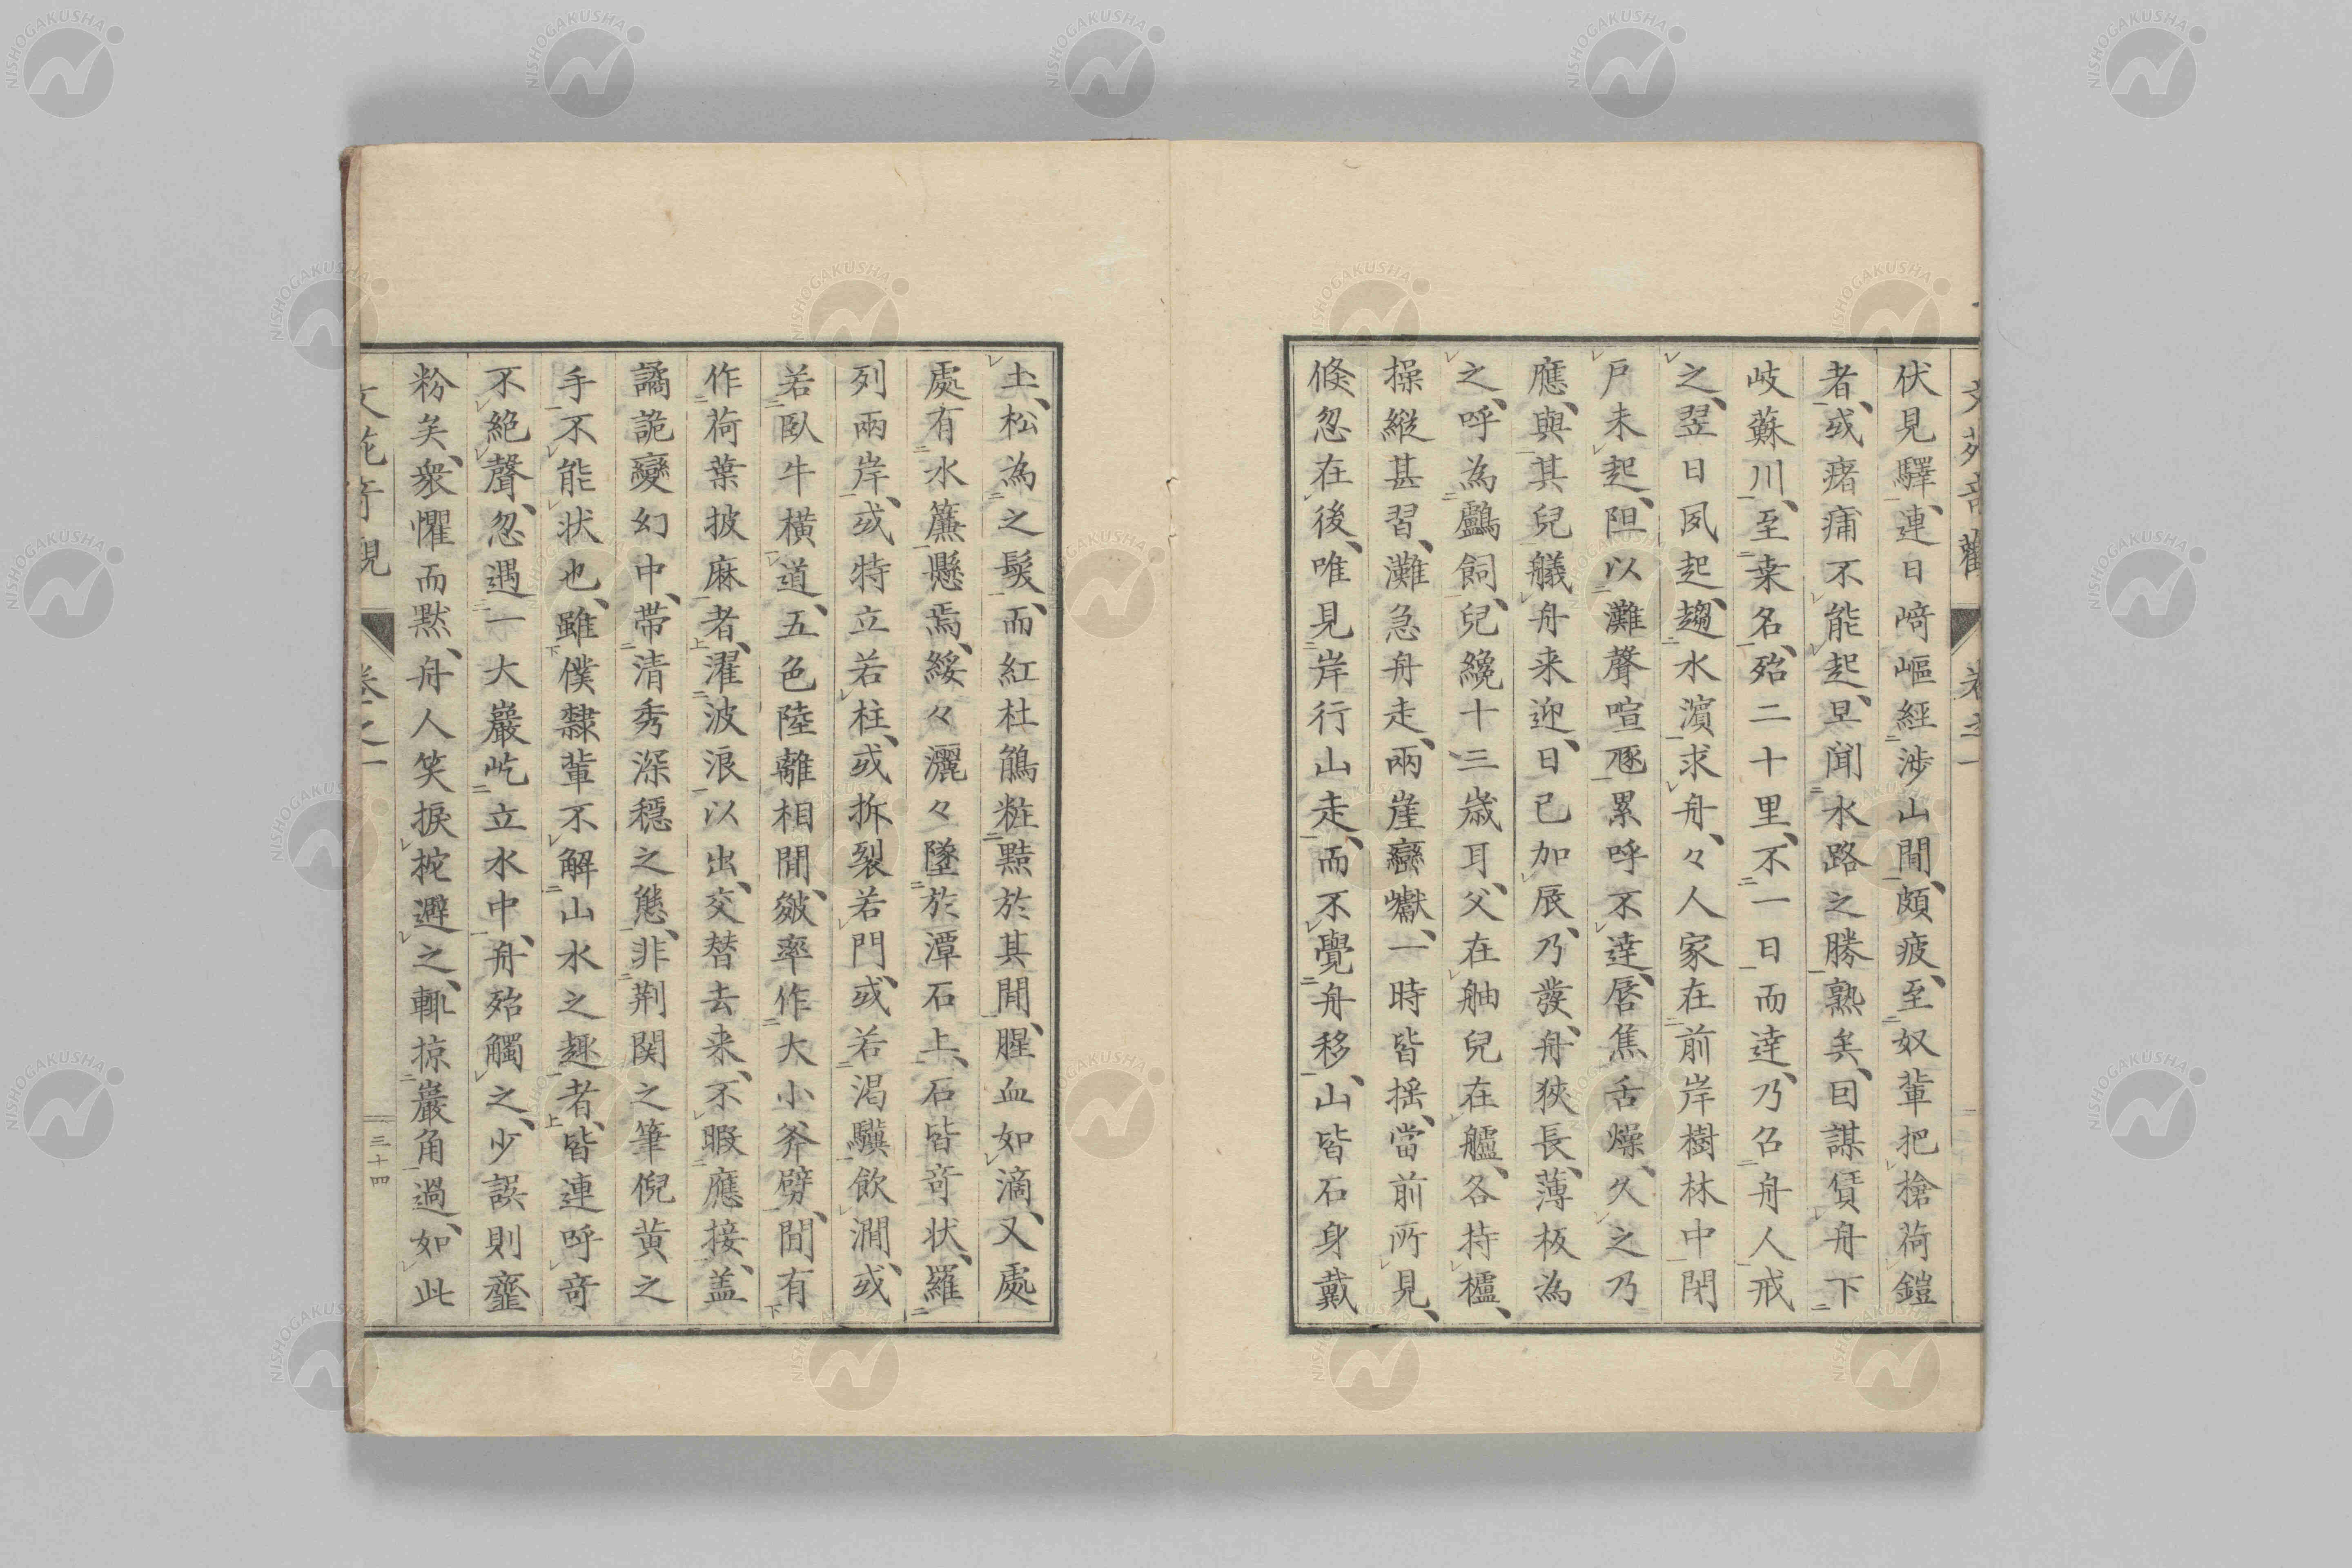 伏見驛、連日﨑嶇經渉山間、頗疲、至奴輩把搶荷鎧
者、或瘏痡不能起、早聞水路之勝熟矣、因謀賃舟下
岐蘇川、至桒名、殆二十里、不一日而達、乃召舟人戒
之、翌日夙起、趨水濵求舟、々人家在前岸樹林中閉
戸未起、阻以灘聲喧豗累呼不達、唇焦舌燥、久之乃
應、與其兒艤舟来迎、日已加辰、乃發、舟狹長、薄板為
之、呼為鸕飼、兒纔十三歳耳、父在舳兒在艫、各持櫨、
操縦甚習、灘急舟走、兩崖巒巘、一時皆揺、當前所見、
倏忽在後、唯見岸行山走、而不覺舟移、山皆石身戴
土、松為之髮、而紅杜鵑粧黠於其間、腥血如滴、又處
處有水簾懸焉、綏々灑々墜於潭石上、石皆竒状、羅
列兩岸、或特立若柱、或拆裂若門、或若渇驥飲澗、或
若臥牛横道、五色陸離相間、皴率作大小斧劈、間有
作荷葉披麻者、濯波浪以出、交替去来、不暇應接、盖
譎詭變幻中、帯清秀深穏之態、非荆関之筆倪黄之
手不能状也、雖僕隸輩不解山水之趣者、皆連呼竒
不絶聲、忽遇一大巖屹立水中、舟殆觸之、少誤則虀
粉矣、衆懼而黙、舟人笑捩柁避之、輙掠巖角過、如此
文苑竒觀
卷之一
三十四